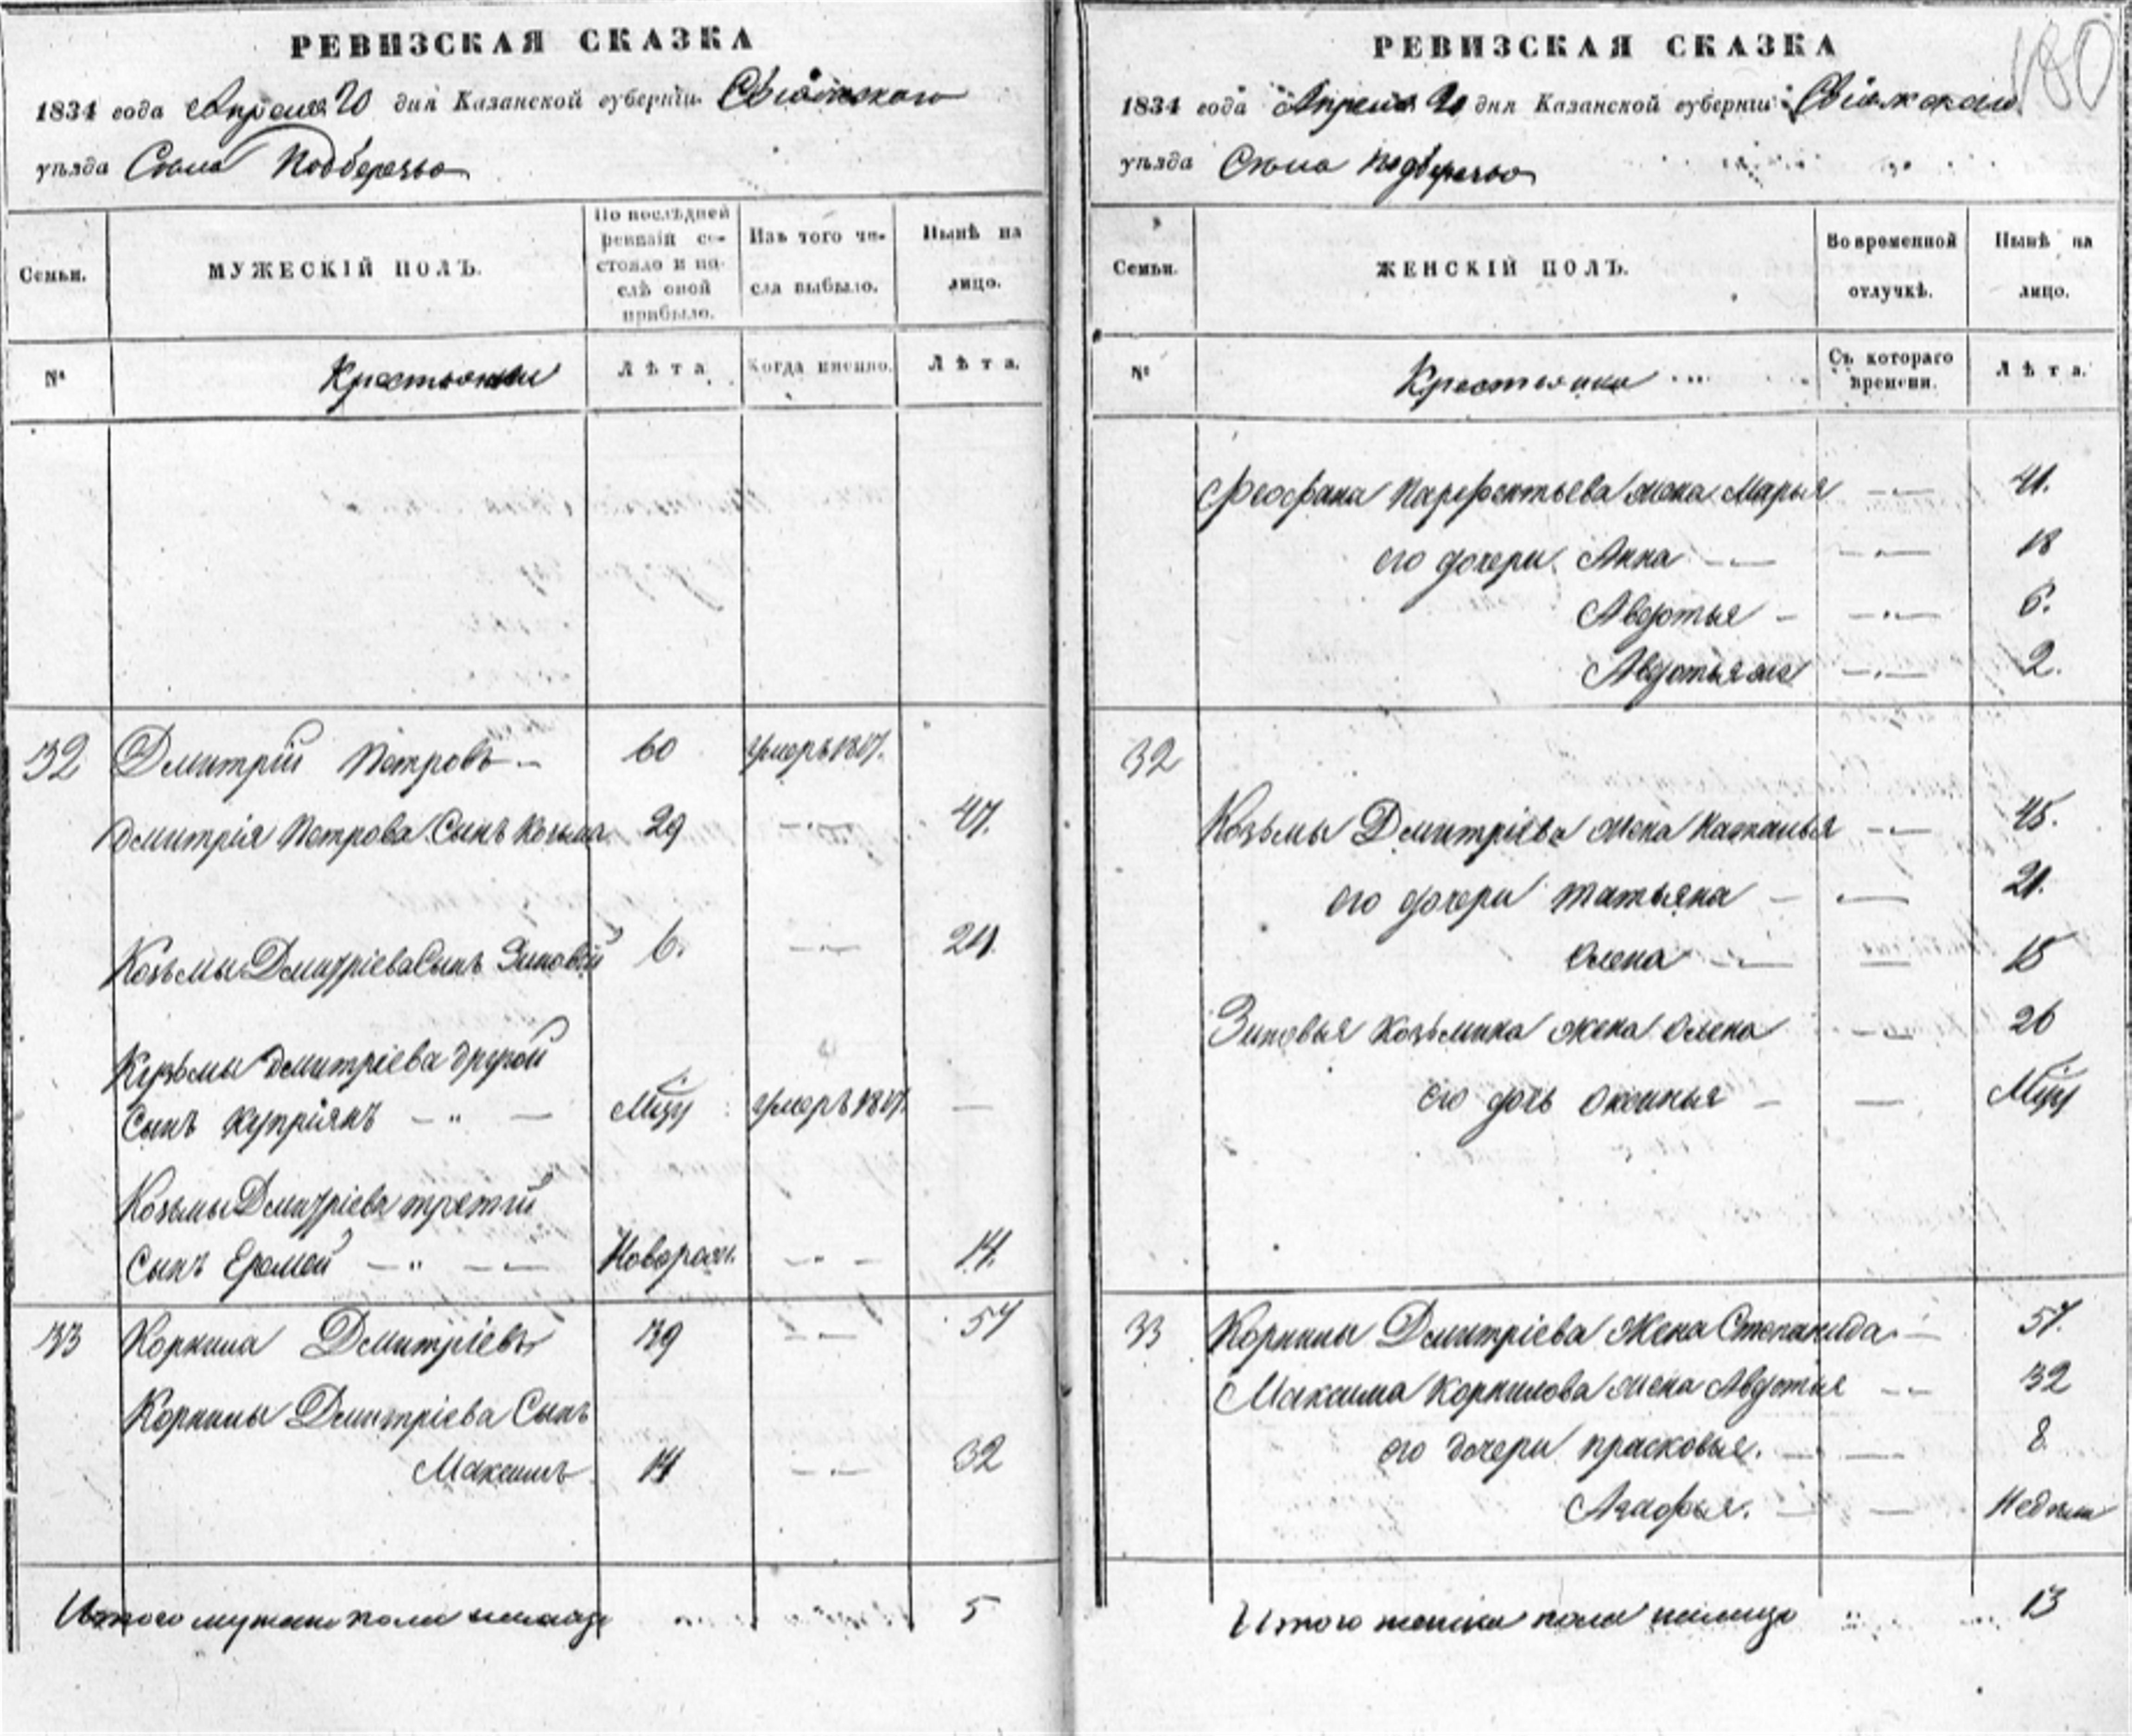 РЕВИЗСКАЯ СКАЗКА
1834 года Апреля 20 дня Казанской губерніи Свіяжскаго
уѣзда Села Подберезья
Семьи.
МУЖЕСКІЙ ПОЛЪ.
По послѣдней ревизіи состояло и послѣ оной прибыло.
Изъ того числа выбыло.
Нынѣ на лицо.
№
Крестьяне
Лѣта.
Когда именно.
Лѣта.
32 Дмитрій Петровъ 60 умеръ 1817.
Дмитрія Петрова Сынъ Козьма 29 47.
Козьмы Дмитріева Сынъ Зиновій 6. 24.
Кузьмы Дмитріева другой
Сынъ Купріянъ умеръ 1817.
Козьмы Дмитріева третій
Сынъ Еремей Новорож. 14.
33 Корнила Дмитріевъ 39 57
Корнилы Дмитріева Сынъ
Максимъ 14 32
Итого мужеска пола налицо 5
180
РЕВИЗСКАЯ СКАЗКА
1834 года Апреля 20 дня Казанской губерніи Свіяжскаго
уѣзда Села Подберезья
Семьи.
ЖЕНСКІЙ ПОЛЪ.
Во временной отлучкѣ.
Нынѣ на лицо.
№
Крестьянки
Съ котораго времени.
Лѣта.
Феофана Парфентьева жена Марья 41.
его дочери Анна 18
Авдотья 6.
Авдотья же 2.
32
Козьмы Дмитріева жена Наталья 45.
его дочери Татьяна 21.
Олена 15
Зиновья Козьмина жена Олена 26
его дочь
33 Корнилы Дмитріева Жена Степанида 57.
Максима Корнилова жена Авдотья 32
его дочери Прасковья. 8
Агафья.
Итого женска пола налицо 13